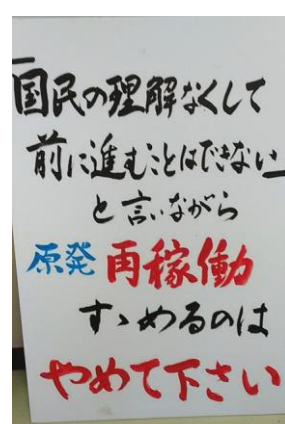 「国民の理解なくして
前に進むことはできない」
と言いながら
原発 再稼働
すゝめるのは
やめて下さい